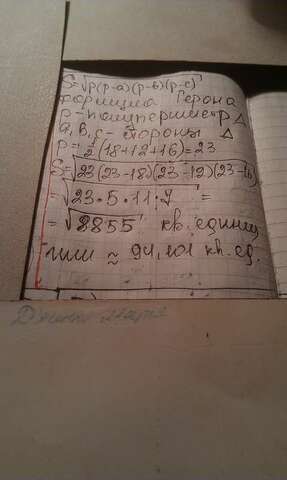 S=√p(p-a)(p-b)(p-c)
формула Герона
p-полупериметр Δ
a, b, c- стороны Δ
p=1/2(18+12+16)=23
S=√23(23-18)(23-12)(23-16)
=√23·5·11·7 =
=√8855 кв. единиц
или ≈ 94,101 кв. ед.